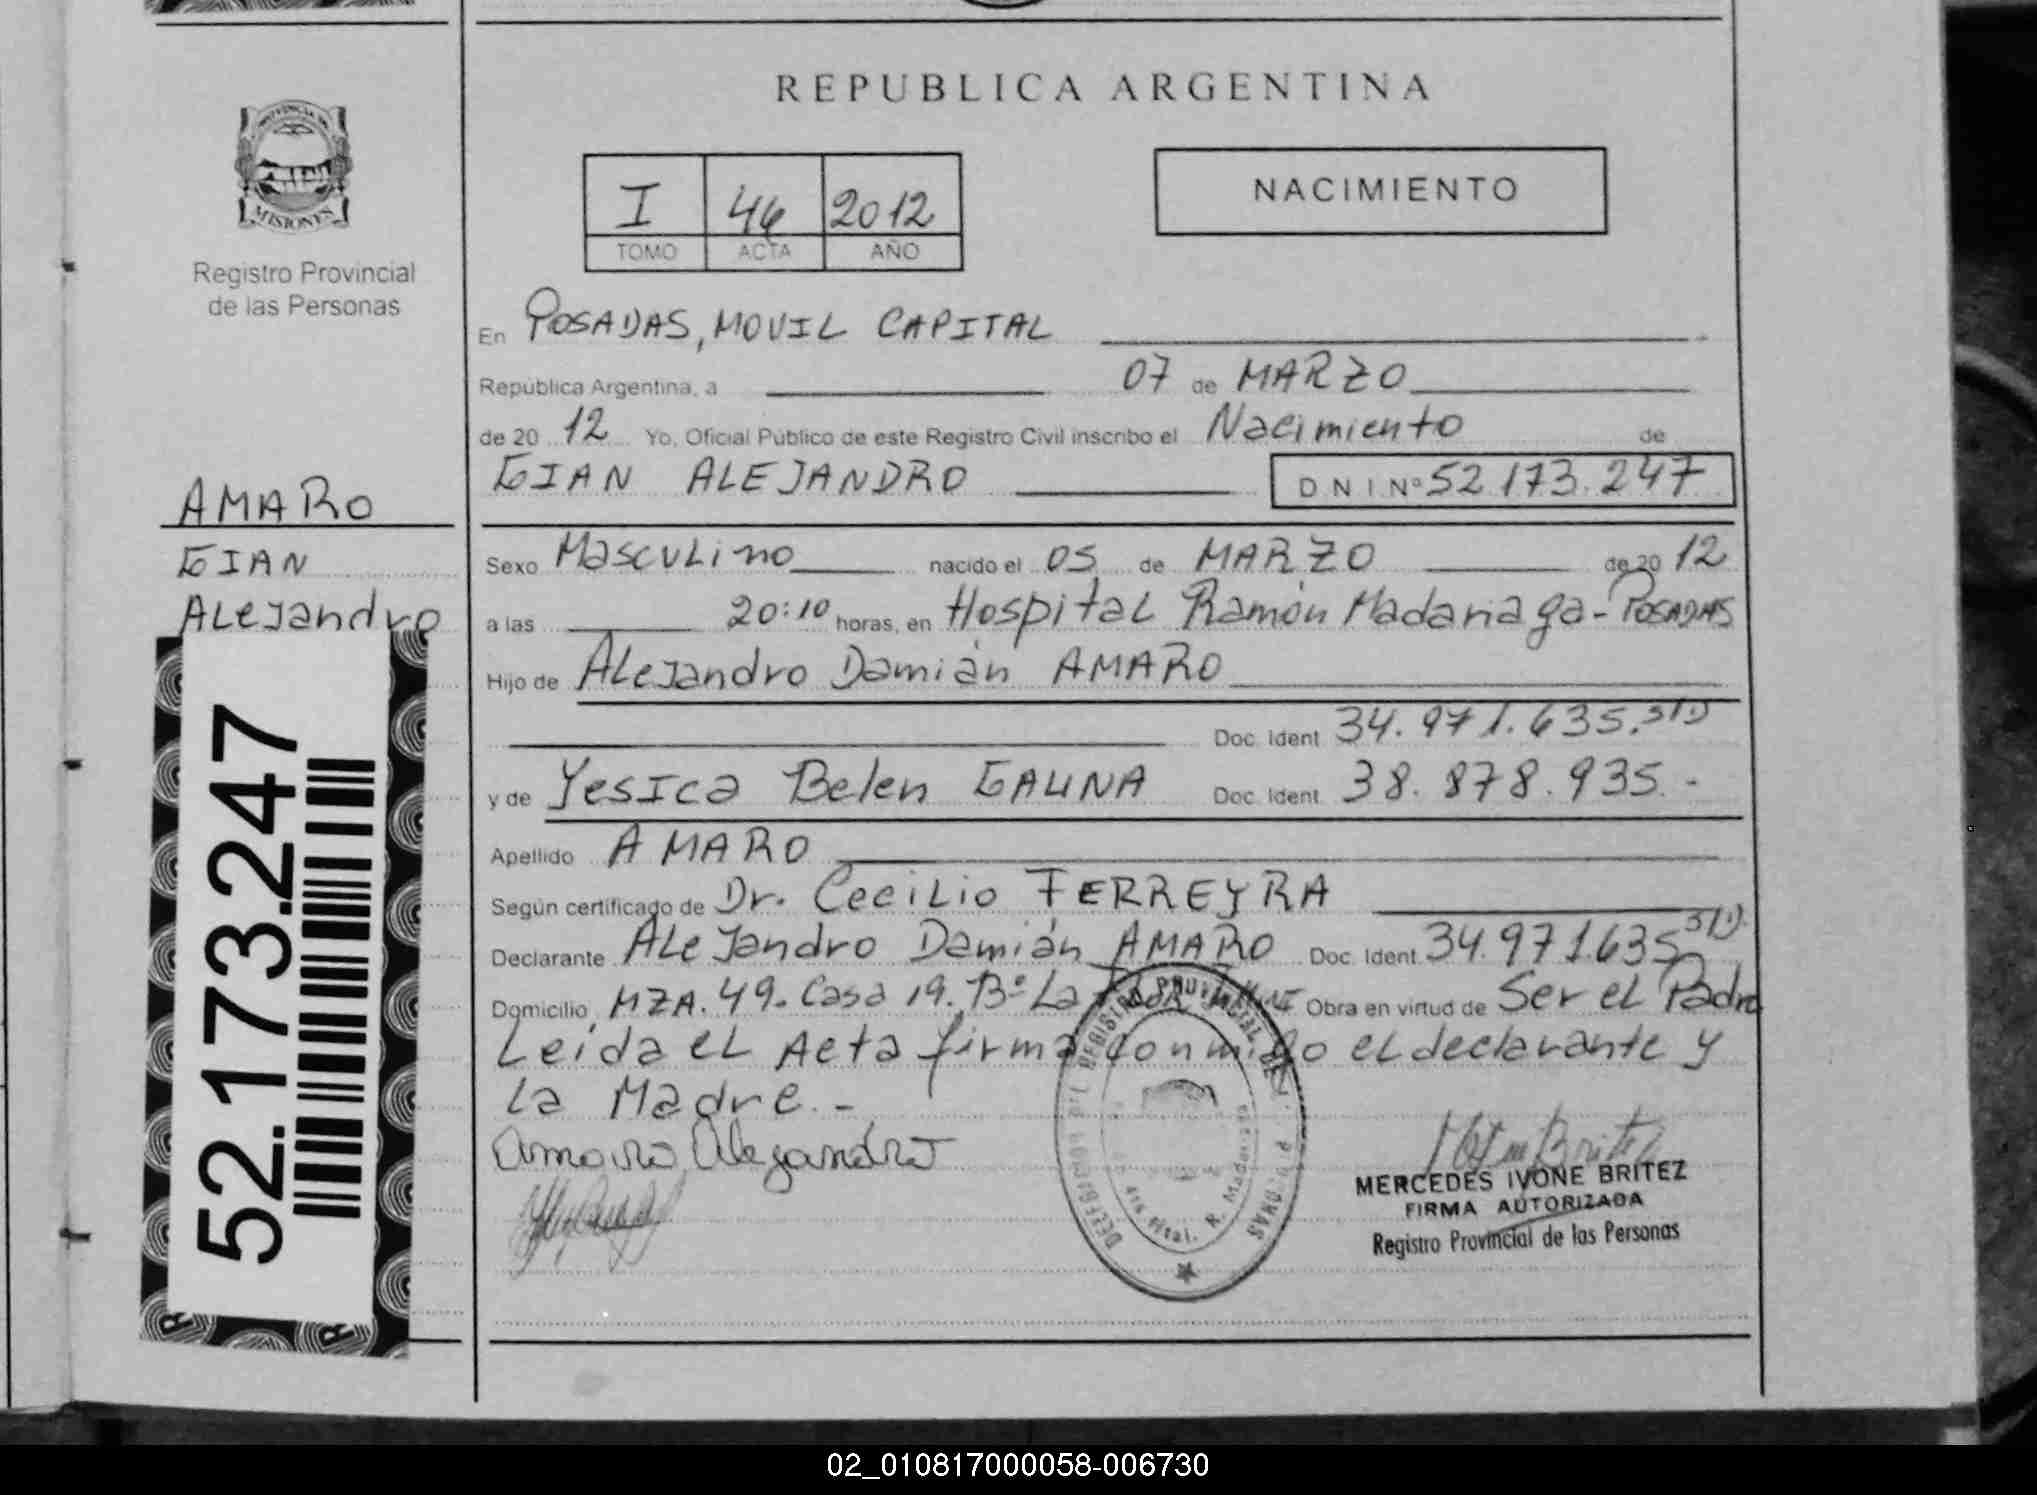 REPUBLICA ARGENTINA
PROVINCIA DE
MISIONES
Registro Provincial
de las Personas
I 46 2012
TOMO ACTA AÑO
NACIMIENTO
En POSADAS, MOVIL CAPITAL
República Argentina, a 07 de MARZO
de 20 12 Yo, Oficial Público de este Registro Civil inscribo el Nacimiento de
GIAN ALEJANDRO DNI Nº 52.173.247
AMARO
GIAN
Alejandro
52.173.247
Sexo Masculino nacido el 05 de MARZO de 20 12
a las 20:10 horas, en Hospital Ramón Madariaga - POSADAS
Hijo de Alejandro Damián AMARO
Doc. Ident 34.971.635. S/D
y de Yesica Belen GAUNA Doc. Ident. 38.878.935.-
Apellido AMARO
Según certificado de Dr. Cecilio FERREYRA
Declarante Alejandro Damián AMARO Doc. Ident. 34.971.635 S/D.
Domicilio MZA. 49. Casa 19. Bº La Obra en virtud de Ser el Padre
Leída el Acta firma conmigo el declarante y
la Madre.-
Amaro Alejandro
MERCEDES IVONE BRITEZ
FIRMA AUTORIZADA
Registro Provincial de las Personas
02_010817000058-006730